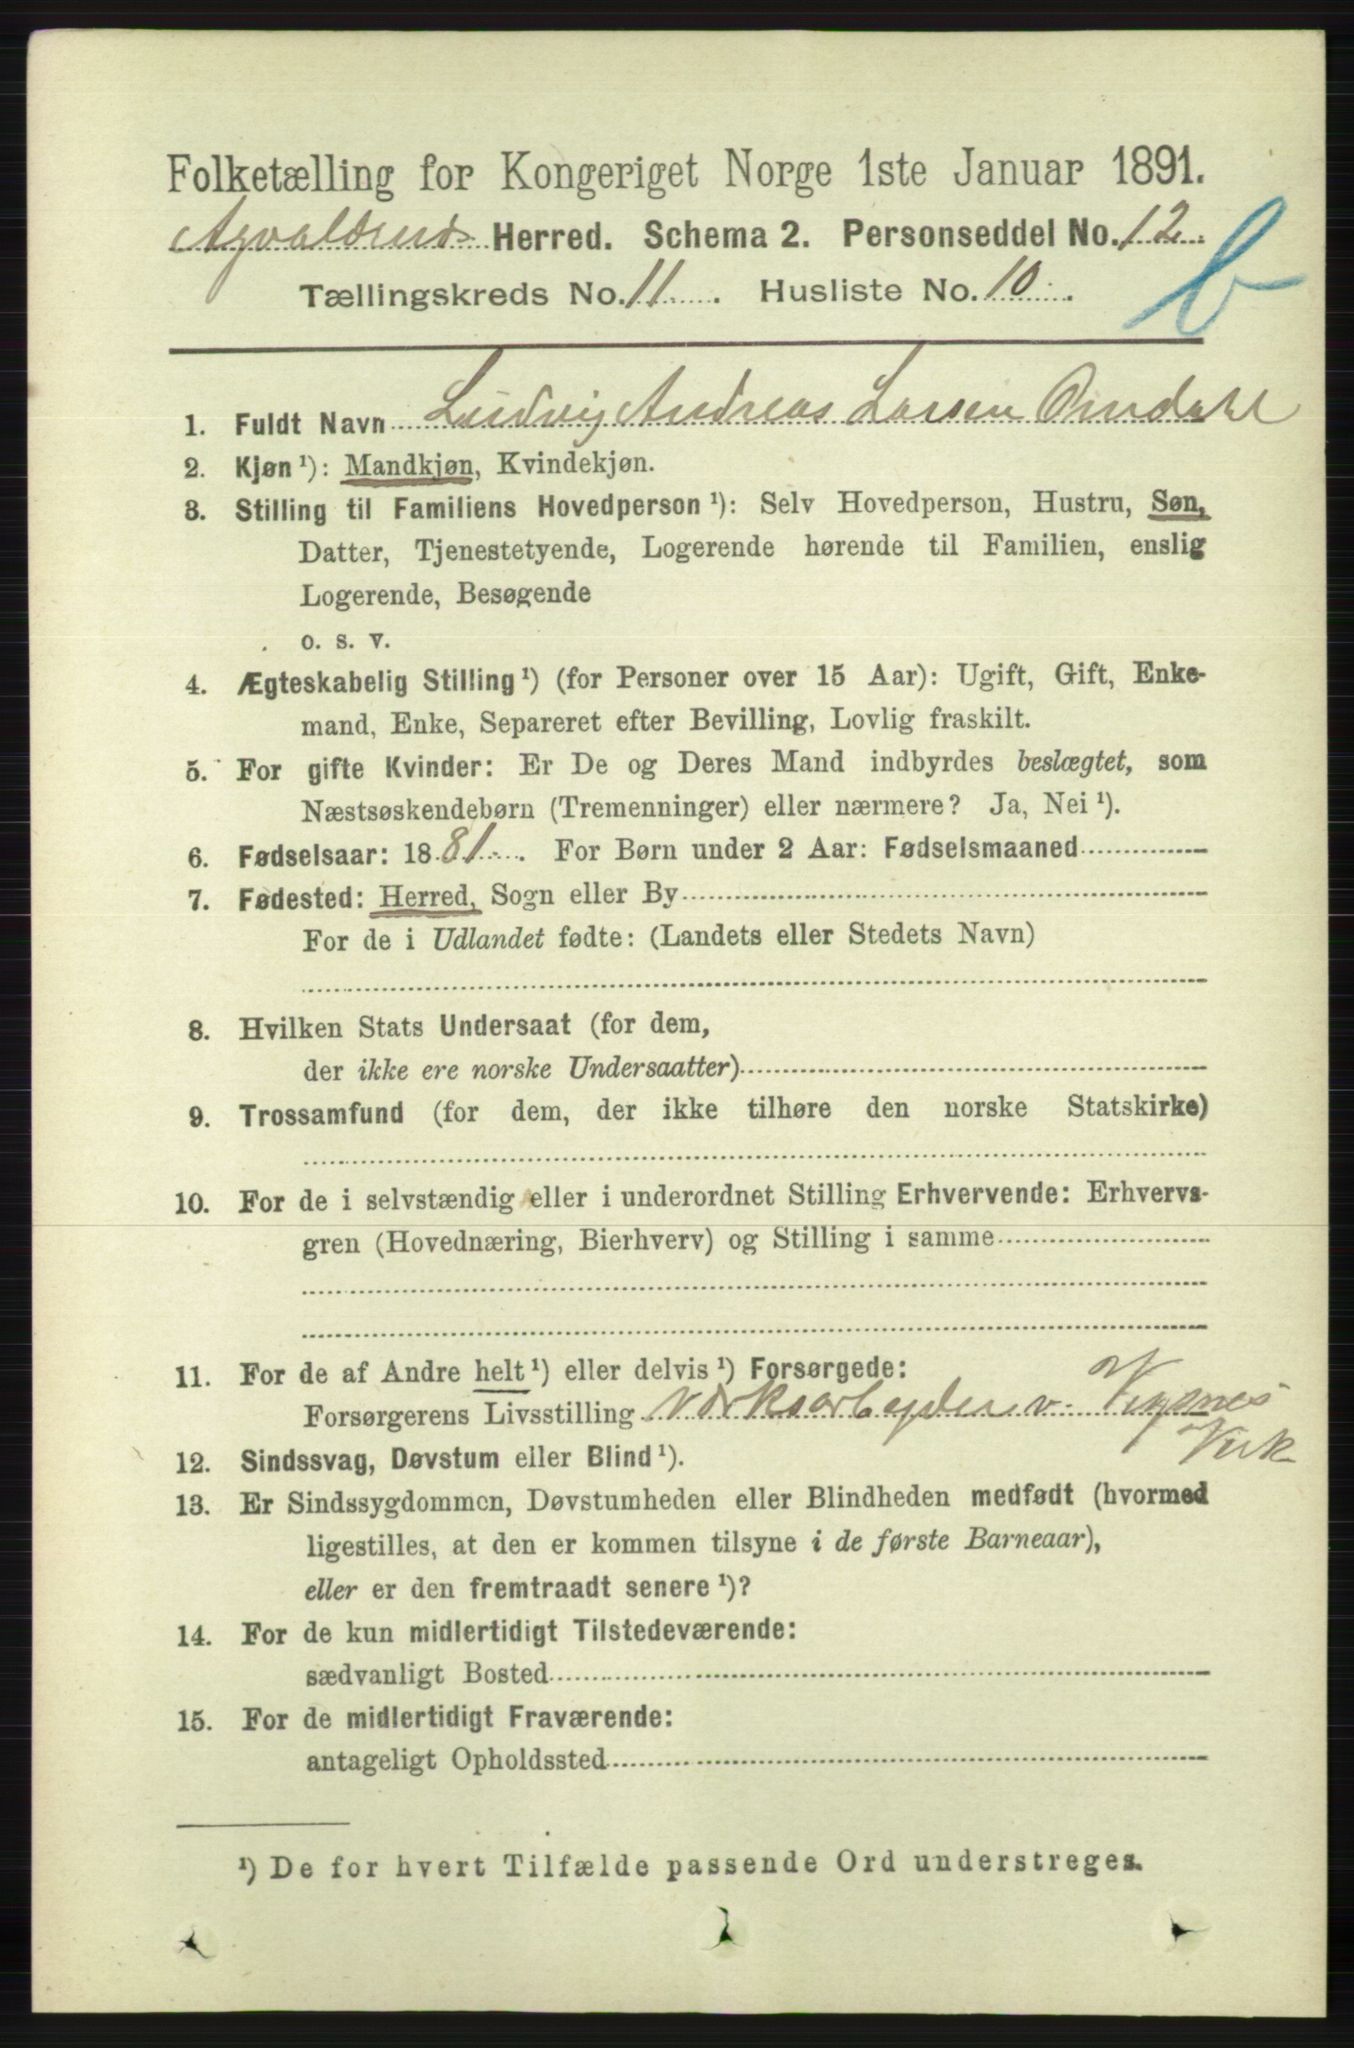 Folketælling for Kongeriget Norge 1ste Januar 1891.
Herred. Schema 2. Personseddel No. 12.
Tællingskreds No. 11. Husliste No. 10.
b
1. Fuldt Navn Ludvig Andreas Larsen Omdahl
2. Kjøn ¹): Mandkjøn, Kvindekjøn.
3. Stilling til Familiens Hovedperson ¹): Selv Hovedperson, Hustru, Søn,
Datter, Tjenestetyende, Logerende hørende til Familien, enslig
Logerende, Besøgende
o. s. v.
4. Ægteskabelig Stilling ¹) (for Personer over 15 Aar): Ugift, Gift, Enke-
mand, Enke, Separeret efter Bevilling, Lovlig fraskilt.
5. For gifte Kvinder: Er De og Deres Mand indbyrdes beslægtet, som
Næstsøskendebørn (Tremenninger) eller nærmere? Ja, Nei ¹).
6. Fødselsaar: 1881. For Børn under 2 Aar: Fødselsmaaned
7. Fødested: Herred, Sogn eller By
For de i Udlandet fødte: (Landets eller Stedets Navn)
8. Hvilken Stats Undersaat (for dem,
der ikke ere norske Undersaatter)
9. Trossamfund (for dem, der ikke tilhøre den norske Statskirke)
10. For de i selvstændig eller i underordnet Stilling Erhvervende: Erhvervs-
gren (Hovednæring, Bierhverv) og Stilling i samme
11. For de af Andre helt ¹) eller delvis ¹) Forsørgede:
Forsørgerens Livsstilling Værksarbeyder v. Vigsnes
Verk
12. Sindssvag, Døvstum eller Blind ¹).
13. Er Sindssygdommen, Døvstumheden eller Blindheden medfødt (hvormed
ligestilles, at den er kommen tilsyne i de første Barneaar),
eller er den fremtraadt senere ¹)?
14. For de kun midlertidigt Tilstedeværende:
sædvanligt Bosted
15. For de midlertidigt Fraværende:
antageligt Opholdssted
¹) De for hvert Tilfælde passende Ord understreges.